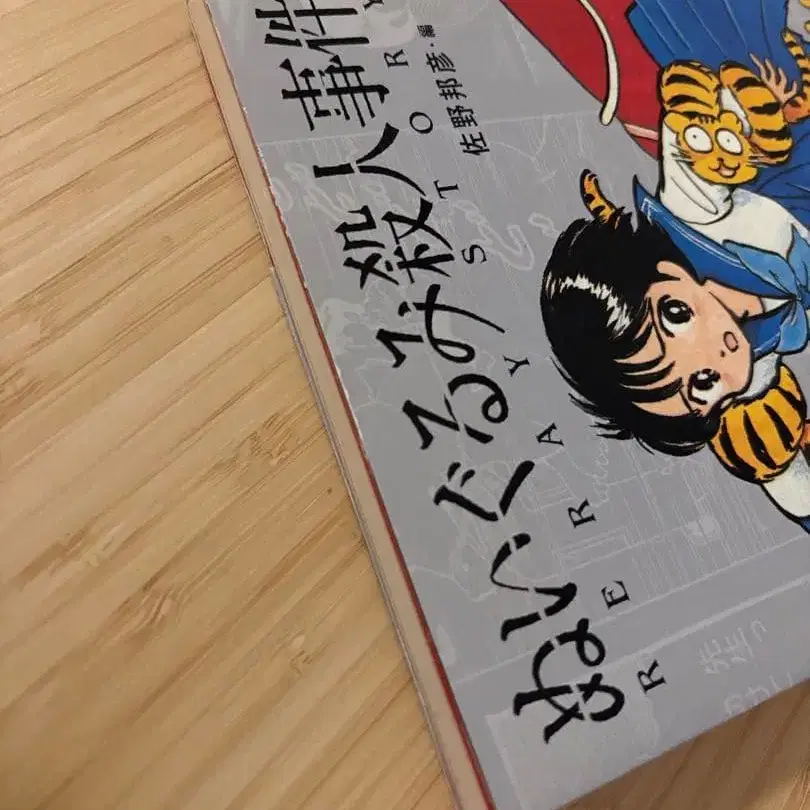 ぬいぐるみ殺人事件
RERRAYSTORY
佐野邦彦・編
先生っ